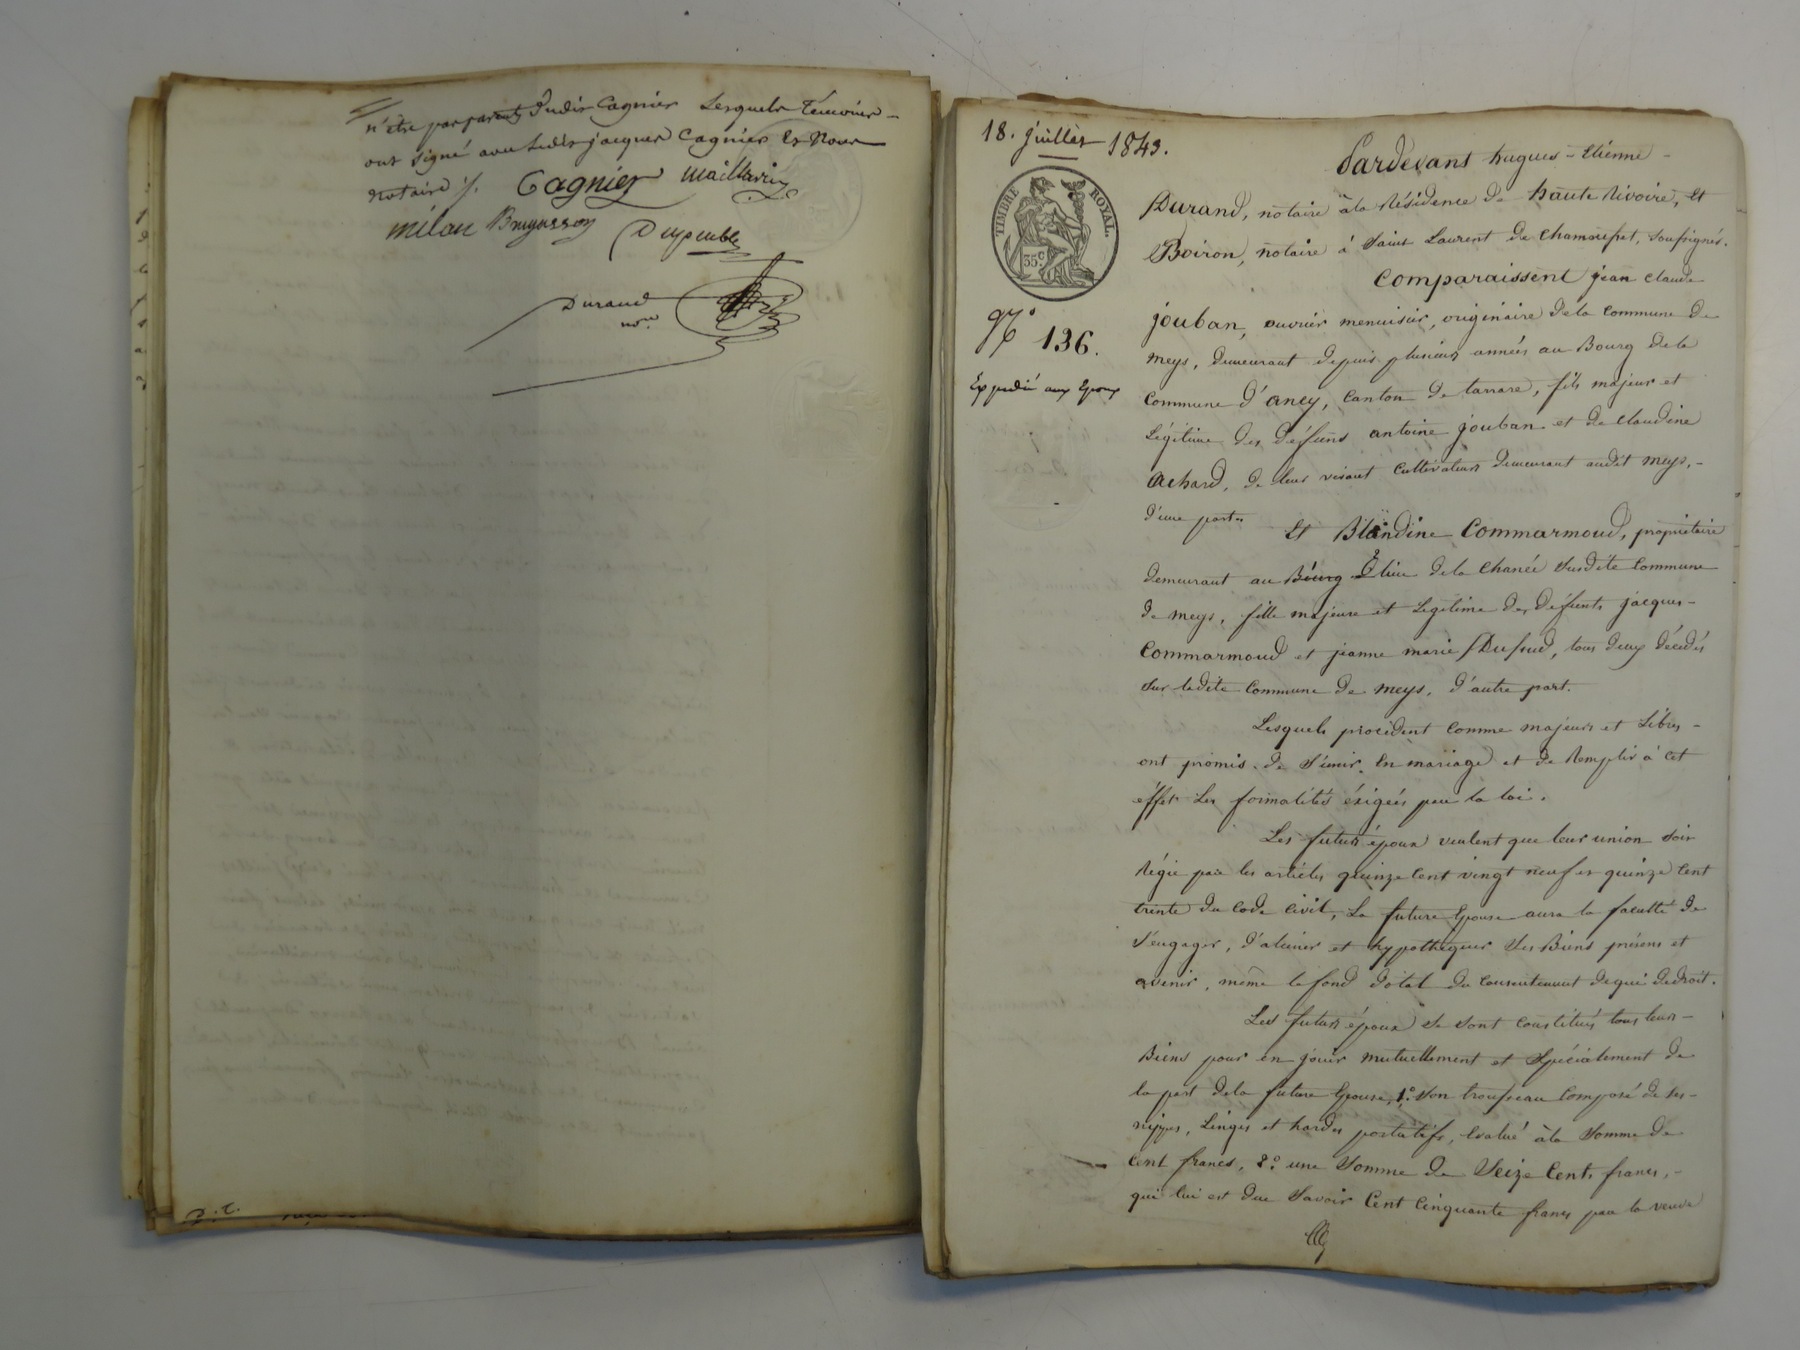 n'être pas parents dudit Cagnier Lesquels témoins
ont signé avec ledit jacques Cagnier Et Nous
notaire ./.
Cagnier Maillavin
milan Bruyasson
Dupeuble
Durand
nore
18. juillet 1843.
TIMBRE ROYAL.
35c
No 136.
Expédié aux Epoux
Pardevant hugues-Etienne
Durand, notaire à la Résidence de haute Rivoire, Et
Boiron, notaire à Saint Laurent de Chamousset, soussignés.
Comparaissent jean claude
jouban, ouvrier menuisier, originaire de la Commune de
meys, demeurant depuis plusieurs années au Bourg de la
Commune d'ancy, Canton de tarrare, fils majeur et
Légitime des défunts antoine jouban et de Claudine
Achard, de leur vivant Cultivateurs demeurant audit meys,
d'une part
Et Blandine Commarmoud, propriétaire
demeurant au Bourg Et lieu de la Chanée susdite Commune
de meys, fille majeure et Legitime des défunts jacques
Commarmoud et jeanne marie Dufud, tous deux décédés
sur ledite Commune de meys, d'autre part.
Lesquels procédent Comme majeurs et Libres
ont promis de S'unir En mariage et de Remplir à Cet
éffet Les formalités éxigées par la loi.
Les futurs époux veulent que leur union soit
Régie par les articles quinze Cent vingt neuf et quinze Cent
trente du Code Civil, La future Epouse aura la faculté de
s'engager, d'aliener et hypothéquer ses Biens présens et
avenir, même le fond dotal du Consentement de qui de droit.
Les futurs époux se sont Constitués tous leurs
Biens pour en jouir mutuellement et Spécialement de
la part de la future Epouse, 1.° Son trousseau Composé de ses
nippes, Linges et hardes portatifs, Evalué à la Somme de
Cent francs, 2.° une Somme de Seize Cents francs,
qui lui est due Savoir Cent Cinquante francs par la veuve